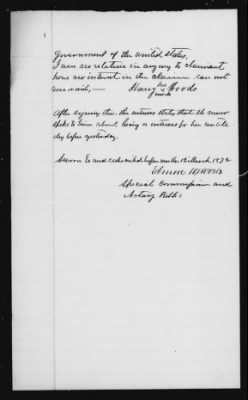 Government of the United States.
I am no relation in any way to claimant,
have no interest in the claim can not
his
Harry x Woods
mark
After signing this the witness states that he never
spoke to him about being a witness for her until
day before yesterday.
Sworn to and subscribed before me this 12 March 1872
Special Commissioner and
Notary Public